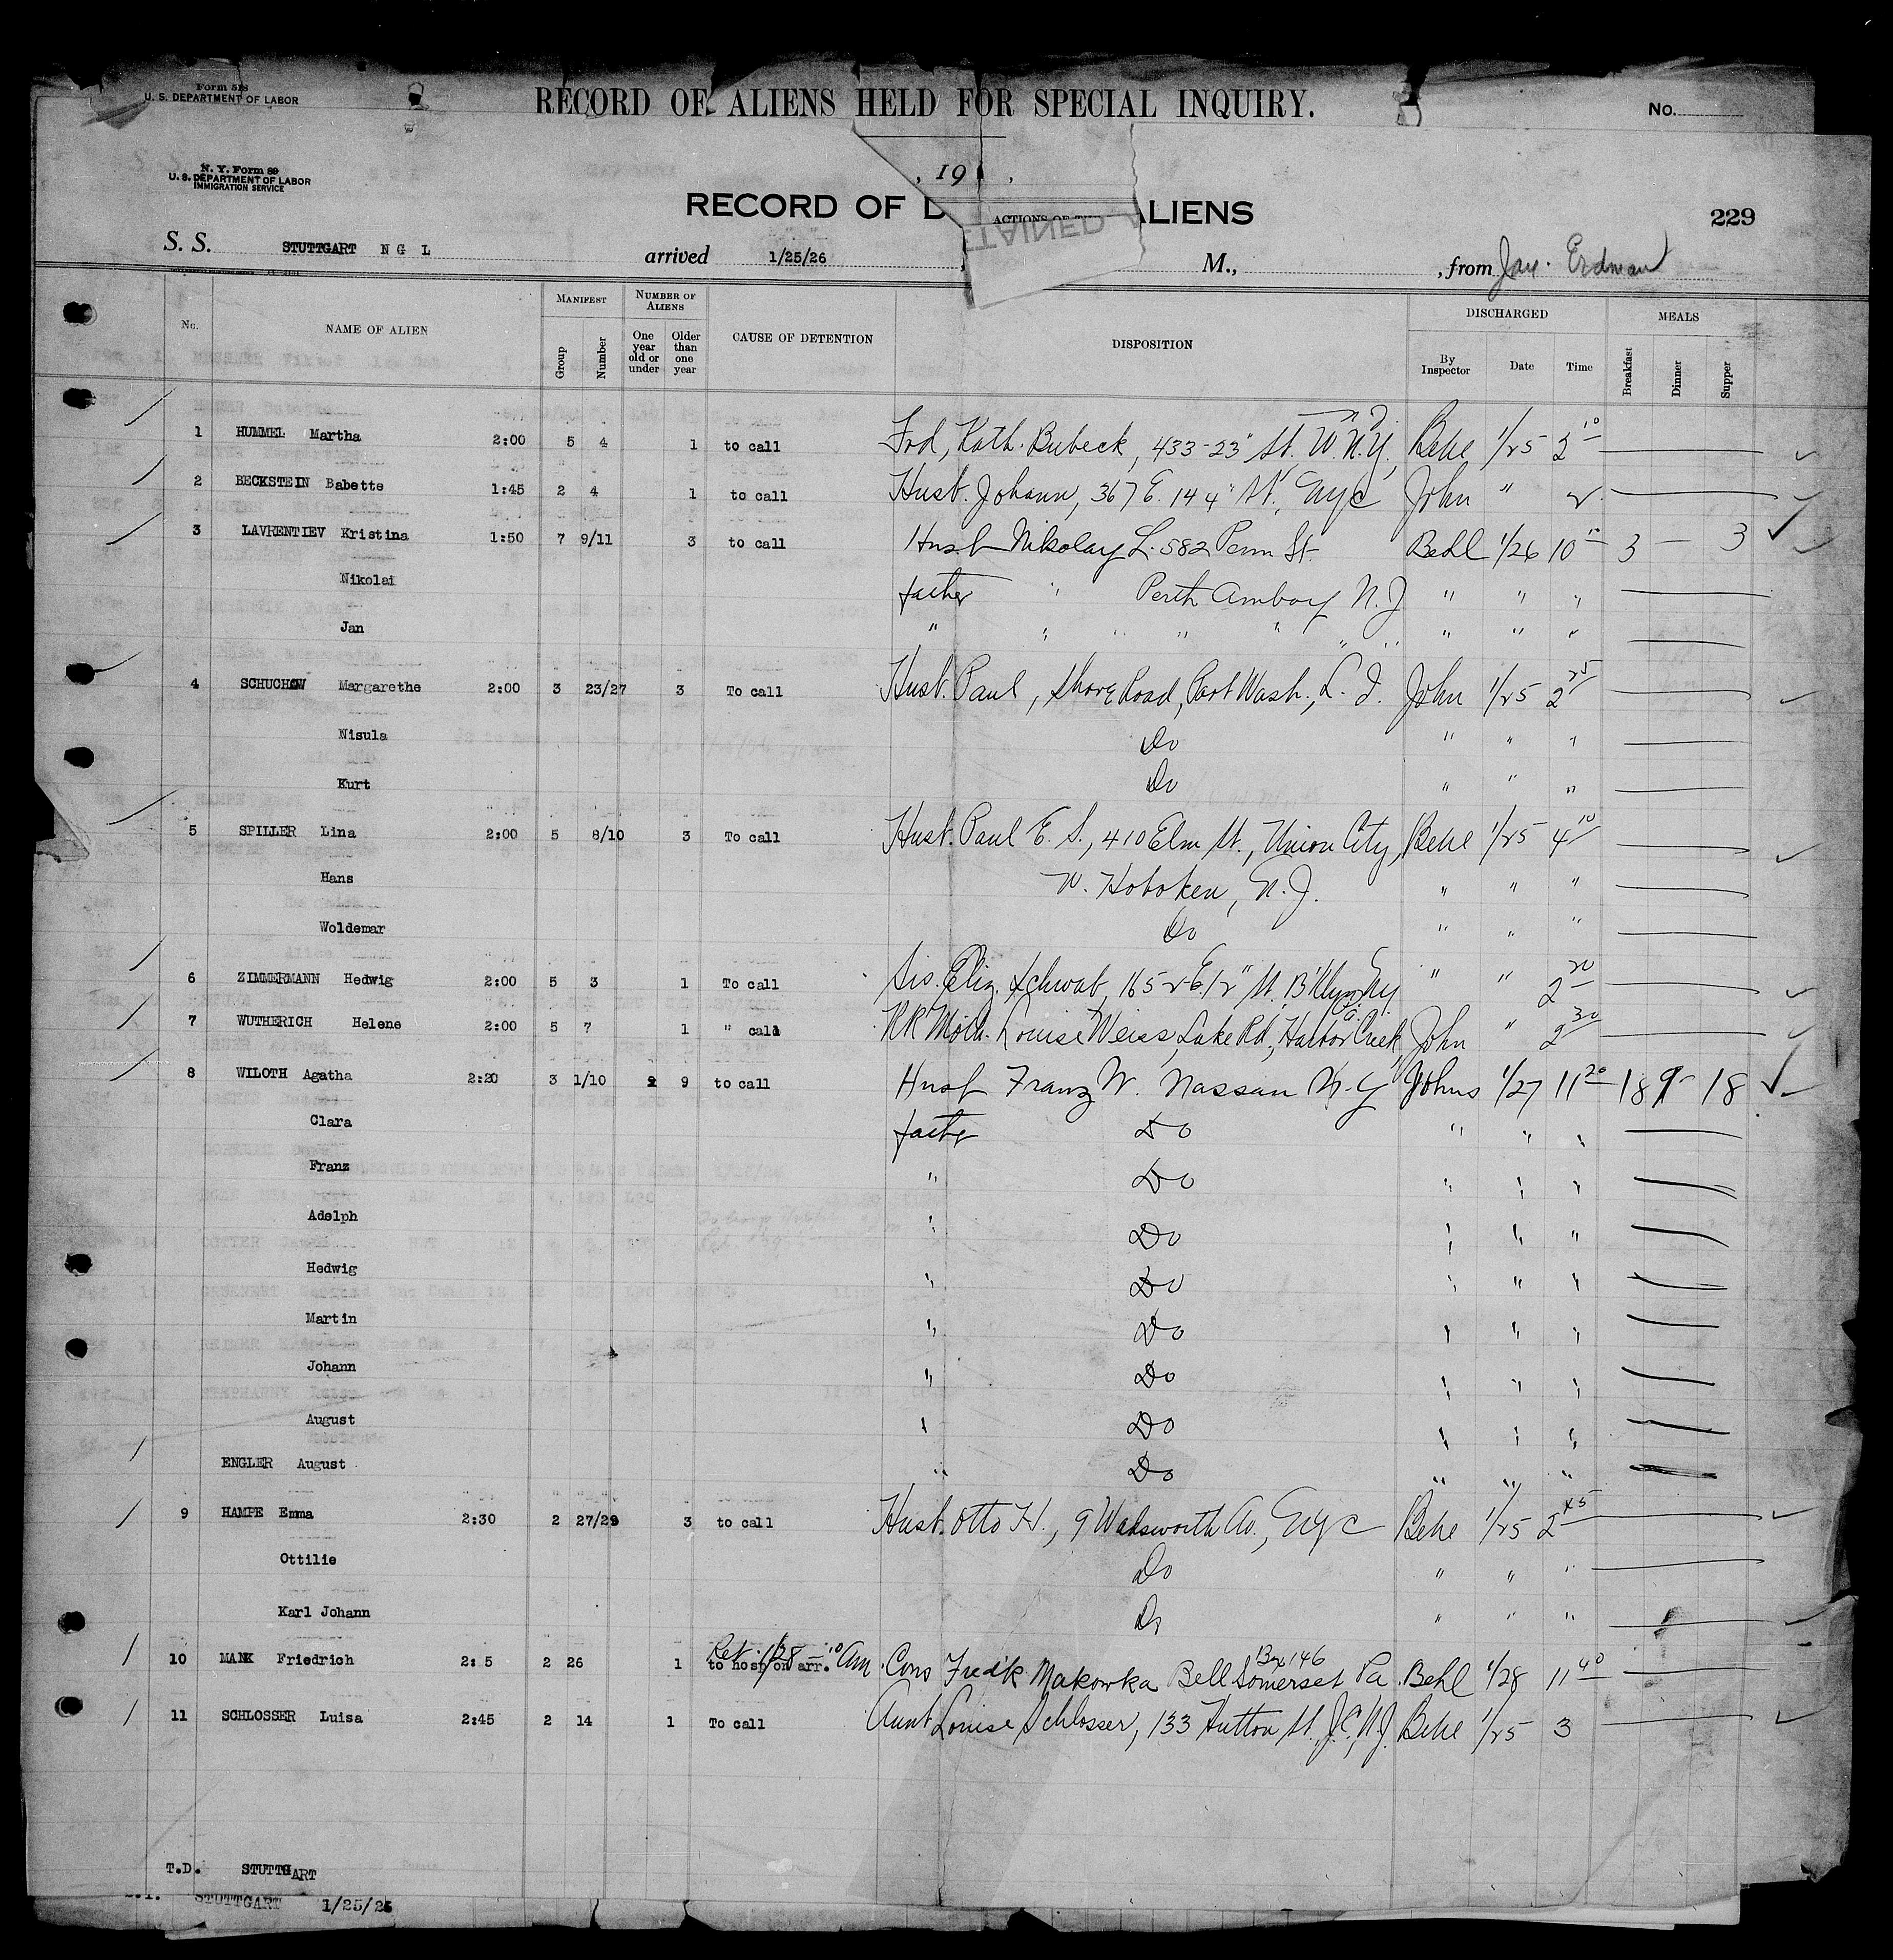 Form 518
U. S. DEPARTMENT OF LABOR
RECORD OF ALIENS HELD FOR SPECIAL INQUIRY.
No.
N. Y. Form 89
U. S. DEPARTMENT OF LABOR
IMMIGRATION SERVICE
, 19 ,
RECORD OF D ALIENS
ACTIONS OF THE
TAINED
229
S. S. STUTTGART N G L arrived 1/25/26 , M., , from Jay. Erdman
No. NAME OF ALIEN MANIFEST Group Number NUMBER OF ALIENS One year old or under Older than one year CAUSE OF DETENTION DISPOSITION DISCHARGED By Inspector Date Time MEALS Breakfast Dinner Supper
1 HUMMEL Martha 2:00 5 4 1 to call Frd, Kath. Bubeck, 433-23" St. W. N.Y., Behe 1/25 2 10
2 BECKSTEIN Babette 1:45 2 4 1 to call Husb. Johann, 367 E. 144" St., NYC John " 2
3 LAVRENTIEV Kristina 1:50 7 9/11 3 to call Husb Nikolay L. 582 Penn St. Behl 1/26 10 3 — 3
Nikolai father " Perth Amboy N. J " " "
Jan " " " " " " " " " "
4 SCHUCHOW Margarethe 2:00 3 23/27 3 To call Husb. Paul, Shore Road, Port Wash., L. I. John 1/25 2 25
Nisula Do " " "
Kurt Do " " "
5 SPILLER Lina 2:00 5 8/10 3 To call Husb. Paul E. S., 410 Elm St., Union City, Behe 1/25 4 10
Hans W. Hoboken, N. J. " " "
Woldemar Do " " "
6 ZIMMERMANN Hedwig 2:00 5 3 1 To call Sis. Eliz. Schwab, 1652 E. 12" St. B'klyn NY " " 2 20
7 WUTHERICH Helene 2:00 5 7 1 " call RR Moth. Louise Weiss, Lake Rd., Harbor Creek, Pa. John " 2 30
8 WILOTH Agatha 2:20 3 1/10 9 to call Husb Franz W. Nassau N-Y Johns 1/27 11 20 18 9 — 18
Clara father Do " " "
Franz " Do " " "
Adolph " Do " " "
Hedwig " Do " " "
Martin " Do " " "
Johann " Do " " "
August " Do " " "
ENGLER August " Do " " "
9 HAMPE Emma 2:30 2 27/29 3 to call Husb. Otto H., 9 Wadsworth Av., NYC Behe 1/25 2 45
Ottilie Do " " "
Karl Johann Do " " "
Ret. 1/28 — 10 Am Box 146
10 MANK Friedrich 2: 5 2 26 1 to hosp on arr. Cons Fredk Makowka Bell Somerset Pa. Behl 1/28 11 40
11 SCHLOSSER Luisa 2:45 2 14 1 To call Aunt Louise Schlosser, 133 Hutton St. J.C., N.J. Behe 1/25 3
T.D. STUTTGART
STUTTGART 1/25/26